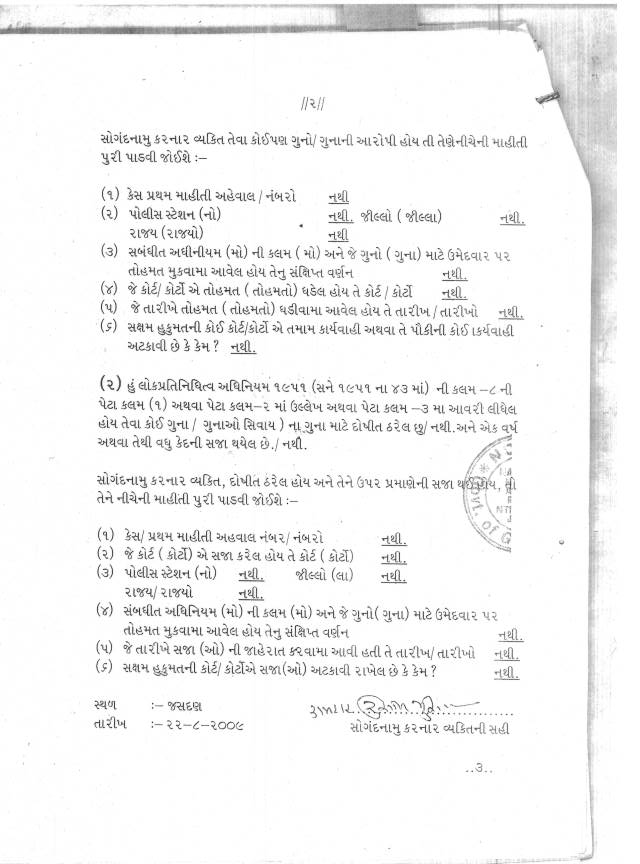 //૨//
સોગંદનામુ કરનાર વ્યકિત તેવા કોઈપણ ગુનો/ ગુનાની આરોપી હોય તી તેણેનીચેની માહીતી
પુરી પાડવી જોઈશે :–
(૧) કેસ પ્રથમ માહીતી અહેવાલ / નંબરો નથી
(૨) પોલીસ સ્ટેશન (નો) નથી. જીલ્લો ( જીલ્લા) નથી.
રાજય (રાજયો) નથી
(૩) સબંધીત અધીનીયમ (મો) ની કલમ ( મો) અને જે ગુનો ( ગુના) માટે ઉમેદવાર પર
તોહમત મુકવામા આવેલ હોય તેનુ સંક્ષિપ્ત વર્ણન નથી.
(૪) જે કોર્ટ/ કોર્ટો એ તોહમત ( તોહમતો) ઘડેલ હોય તે કોર્ટ / કોર્ટો નથી.
(૫) જે તારીખે તોહમત ( તોહમતો) ઘડીવામા આવેલ હોય તે તારીખ / તારીખો નથી.
(૬) સક્ષમ હુકુમતની કોઈ કોર્ટ/કોર્ટો એ તમામ કાર્યવાહી અથવા તે પૌકીની કોઈ ાકર્યવાહી
અટકાવી છે કે કેમ ? નથી.
(૨) હું લોકપ્રતિનિધિત્વ અધિનિયમ ૧૯૫૧ (સને ૧૯૫૧ ના ૪૩ માં) ની કલમ –૮ ની
પેટા કલમ (૧) અથવા પેટા કલમ–૨ માં ઉલ્લેખ અથવા પેટા કલમ –૩ મા આવરી લીધેલ
હોય તેવા કોઈ ગુના / ગુનાઓ સિવાય ) ના ગુના માટે દોષીત ઠરેલ છુ/ નથી.અને એક વર્ષ
અથવા તેથી વધુ કેદની સજા થયેલ છે./ નથી.
સોગંદનામુ કરનાર વ્યકિત, દોષીત ઠરેલ હોય અને તેને ઉપર પ્રમાણેની સજા થઈ હોય, તી
તેને નીચેની માહીતી પુરી પાડવી જોઈશે :–
(૧) કેસ/ પ્રથમ માહીતી અહવાલ નંબર/ નંબરો નથી.
(૨) જે કોર્ટ ( કોર્ટો) એ સજા કરેલ હોય તે કોર્ટ ( કોર્ટો) નથી.
(૩) પોલીસ સ્ટેશન (નો) નથી. જીલ્લો (લા) નથી.
રાજય/ રાજયો નથી.
(૪) સંબધીત અધિનિયમ (મો) ની કલમ (મો) અને જે ગુનો( ગુના) માટે ઉમેદવાર પર
તોહમત મુકવામા આવેલ હોય તેનુ સંક્ષિપ્ત વર્ણન નથી.
(૫) જે તારીખે સજા (ઓ) ની જાહેરાત કરવામા આવી હતી તે તારીખ/ તારીખો નથી.
(૬) સક્ષમ હુકુમતની કોર્ટ/ કોર્ટોએ સજા(ઓ) અટકાવી રાખેલ છે કે કેમ ? નથી.
સ્થળ :– જસદણ
તારીખ :– ૨૨–૮–૨૦૦૯
સોગંદનામુ કરનાર વ્યકિતની સહી
..૩..